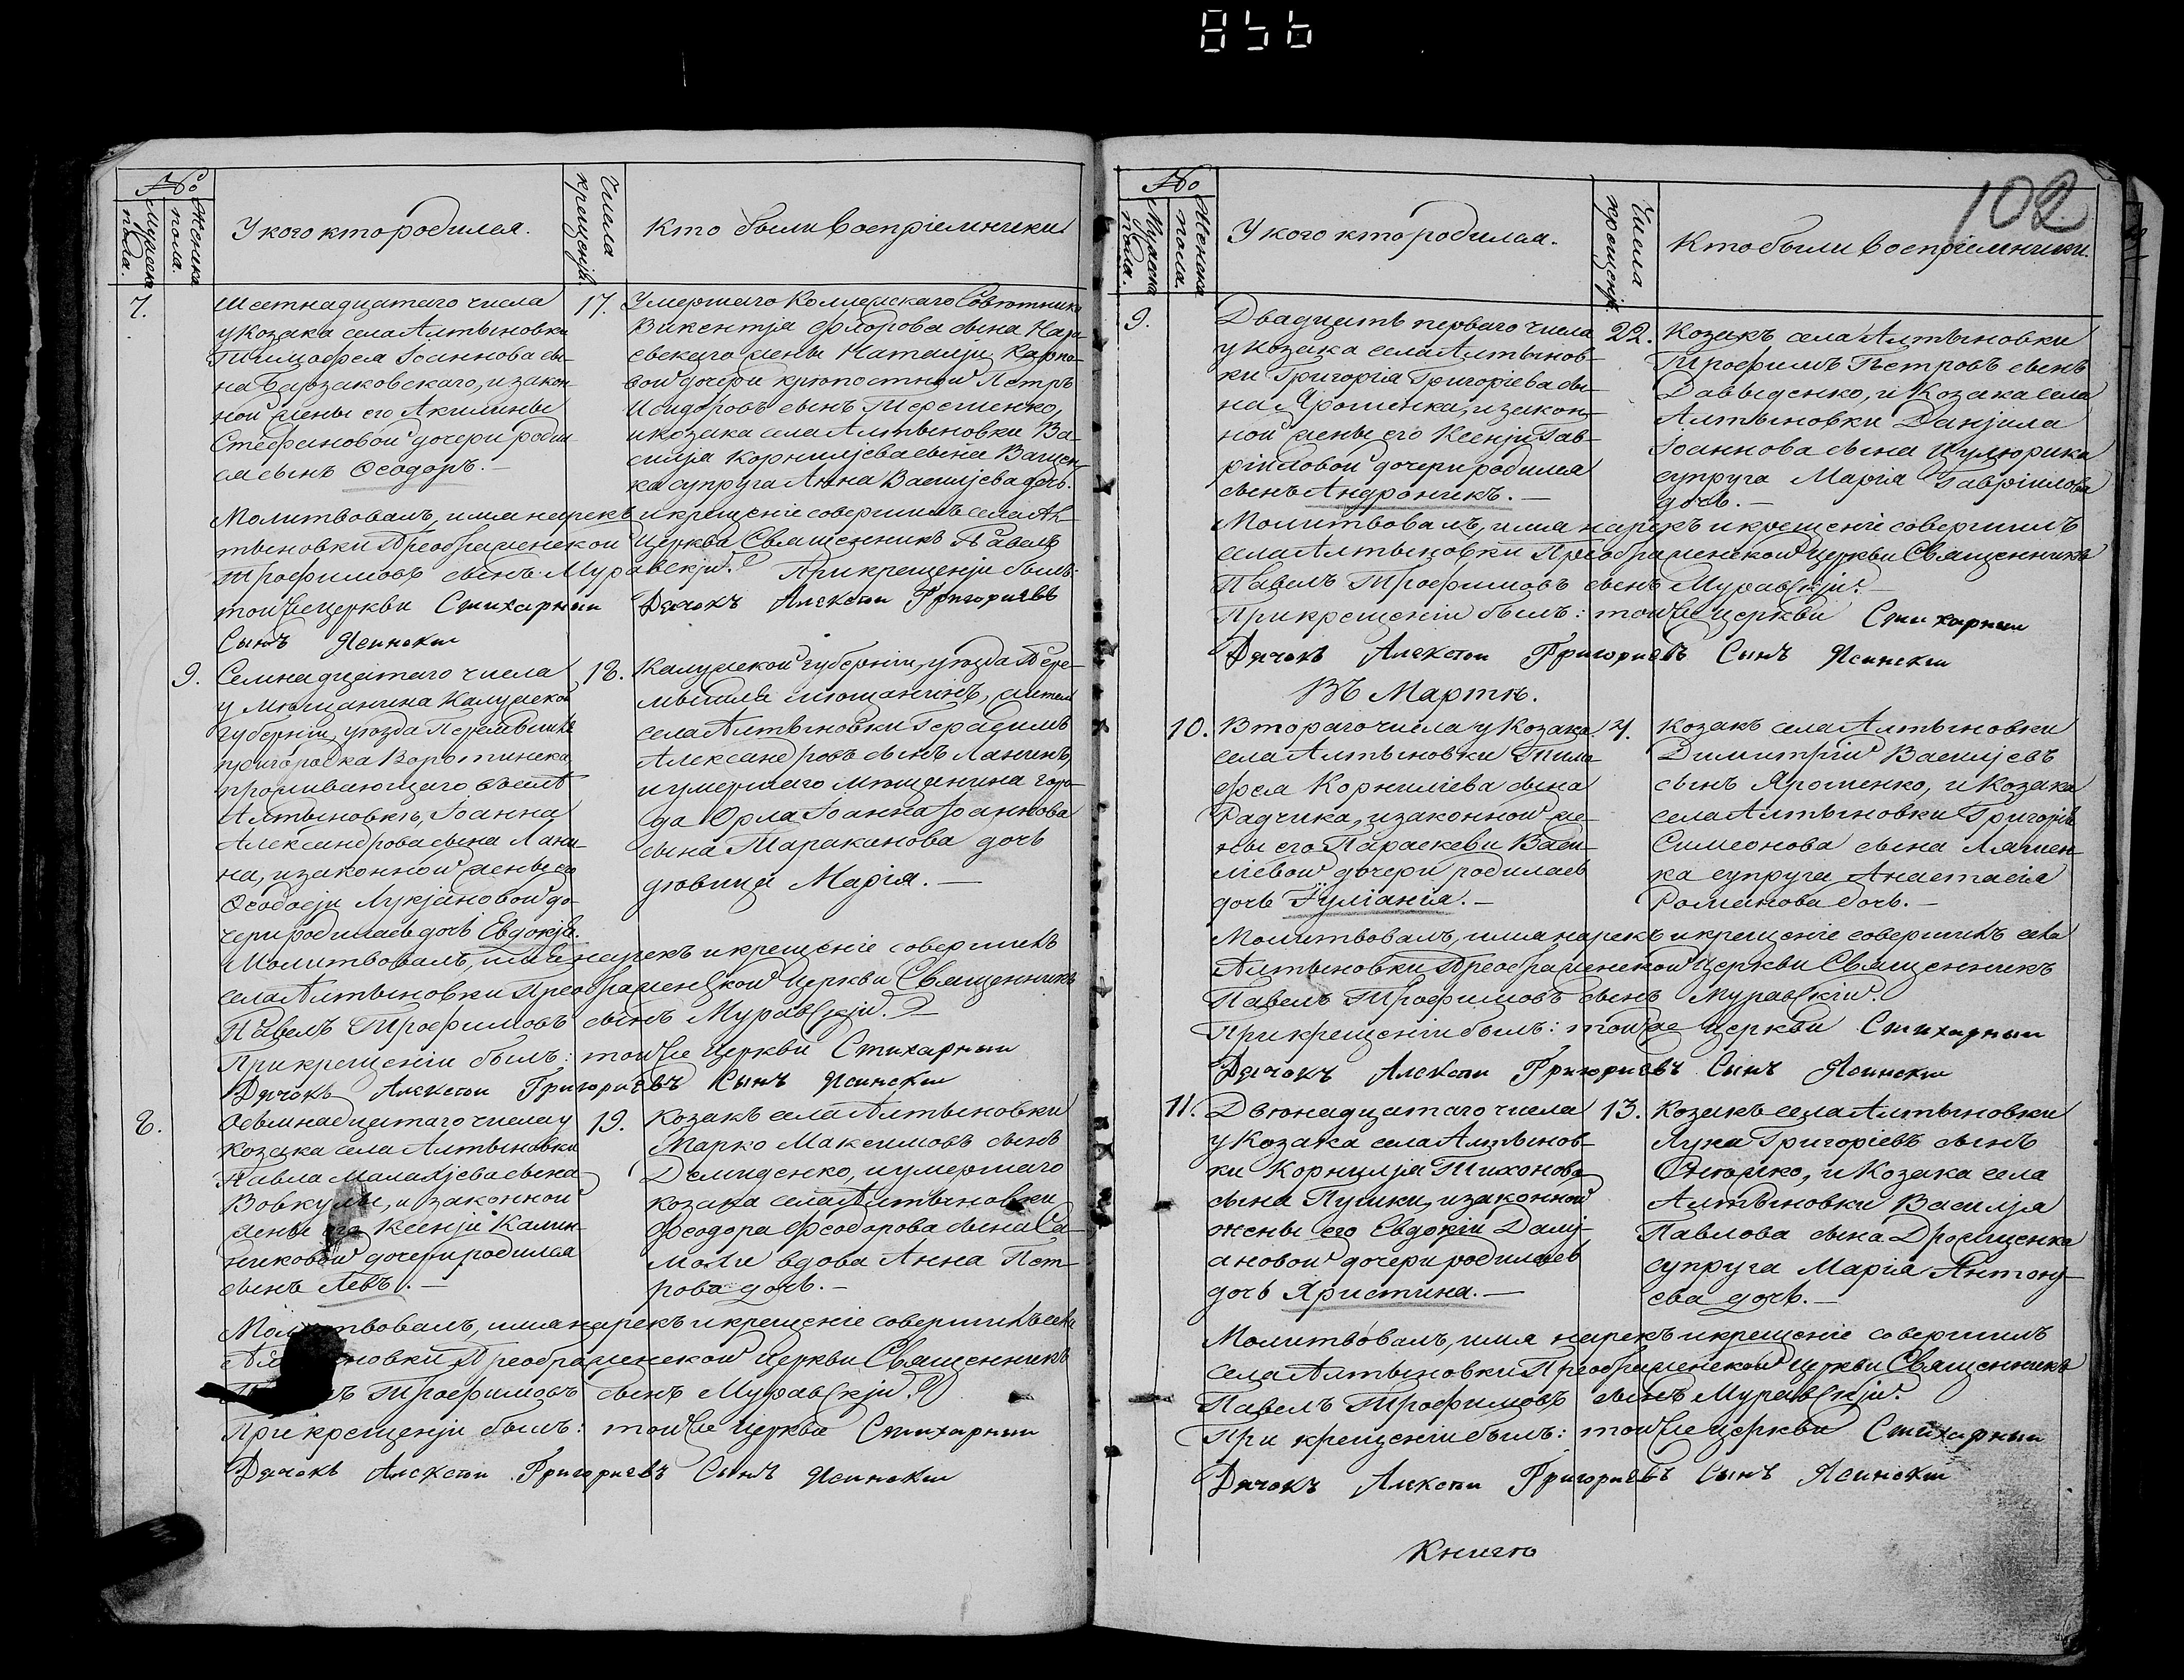 856
№
Мужеска пола.
Женска пола.
У кого кто родился.
Числа крещенія.
Кто были Воспріемники
7.
Шестнадцатаго числа
у Козака села Алтыновки
Тимофея Іоаннова сы-
на Бардаковскаго, и закон-
ной жены его Акилины
Стефановой дочери роди-
ся сынъ Феодоръ.—
17.
Умершаго Коллежскаго Совѣтника
Викентія Флорова сына
жены Наталіи Карпо-
вой дочери крѣпостной Петръ
Исидоровъ сынъ Терещенко,
и козака села Алтыновки Ва-
силія Корниліева сына Ващен-
ка супруга Анна Василіева дочь.
Молитвовалъ, имя нарекъ и крещеніе совершилъ села Ал-
тыновки Преображенской Церкви Священникъ Павелъ
Трофимовъ сынъ Муравскій. При крещеніи былъ:
той же церкви Стихарный Дячокъ Алексѣй Григориевъ
Сынъ Ясинский
9.
Семнадцатаго числа
у Мѣщанина Калужской
губерніи, уѣзда Перемышля
пригородка Воротинска,
проживающаго въ селѣ
Алтыновкѣ, Іоанна
Александрова сына Лани-
на, и законной жены его
Феодосіи Лукіановой до-
чери родилась дочь Евдокія.
18.
Калужской губерніи, уѣзда Пере-
мышля мѣщанинъ, житель
села Алтыновки Герасимъ
Александровъ сынъ Ланинъ,
и умершаго мѣщанина горо-
да Орла Іоанна Іоаннова
сына Тараканова дочь
дѣвица Марія.—
Молитвовалъ, имя нарекъ и крещеніе совершилъ
села Алтыновки Преображенской Церкви Священникъ
Павелъ Трофимовъ сынъ Муравскій.
При крещеніи былъ: той же Церкви Стихарный
Дячокъ Алексѣй Григориевъ Сынъ Ясинский
8.
Осьмнадцатаго числа у
Козака села Алтыновки
Павла Малахіева сына
Вовкулы, и законной
жены его Ксеніи Калин-
никовой дочери родился
сынъ Левъ.—
19.
Козакъ села Алтыновки
Марко Максимовъ сынъ
Демиденко, и умершаго
козака села Алтыновки
Феодора Феодорова сына Са-
моли вдова Анна Пет-
рова дочь.—
Молитвовалъ, имя нарекъ и крещеніе совершилъ села
Алтыновки Преображенской Церкви Священникъ
Павелъ Трофимовъ сынъ Муравскій.
При крещеніи былъ: той же Церкви Стихарный
Дячокъ Алексѣй Григориевъ Сынъ Ясинский
102
№
Мужеска пола.
Женска пола.
У кого кто родился.
Числа крещенія.
Кто были Воспріемники.
9.
Двадцать перваго числа
у козака села Алтынов-
ки Григорія Григоріева сы-
на Ярошенка, и закон-
ной жены его Ксеніи Гав-
ріиловой дочери родился
сынъ Андроникъ.—
22.
Козакъ села Алтыновки
Трофимъ Петровъ сынъ
Давыденко, и Козака села
Алтыновки Даніила
Іоаннова сына Цулюрика
супруга Марія Гавріилова
дочь.—
Молитвовалъ, имя нарекъ и крещеніе совершилъ
села Алтыновки Преображенской Церкви Священникъ
Павелъ Трофимовъ сынъ Муравскій.—
При крещеніи былъ: той же церкви Стихарный
Дячокъ Алексѣй Григориевъ Сынъ Ясинский
Въ Мартѣ.
10.
Втораго числа у Козака
села Алтыновки Тимо-
фея Корниліева сына
Радчика, и законной же-
ны его Параскеви Васи-
ліевой дочери родилась
дочь Іуліанія.—
4.
Козакъ села Алтыновки
Димитрій Василіевъ
сынъ Ярошенко, и Козака
села Алтыновки Григорія
Симеонова сына Ляшен-
ка супруга Анастасія
Романова дочь.—
Молитвовалъ, имя нарекъ и крещеніе совершилъ села
Алтыновки Преображенской Церкви Священникъ
Павелъ Трофимовъ сынъ Муравскій.
При крещеніи былъ: той же церкви Стихарный
Дячокъ Алексѣй Григориевъ Сынъ Ясинский
11.
Двѣнадцатаго числа
у Козака села Алтынов-
ки Корнилія Тихонова
сына Пушки, и законной
жены его Евдокіи Дамі-
ановой дочери родилась
дочь Христина.—
13.
Козакъ села Алтыновки
Лука Григоріевъ сынъ
и Козака села
Алтыновки Василія
Павлова сына Дрофиценка
супруга Марія Антоні-
ева дочь.—
Молитвовалъ, имя нарекъ и крещеніе совершилъ
села Алтыновки Преображенской Церкви Священникъ
Павелъ Трофимовъ сынъ Муравскій.
При крещеніи былъ: той же церкви Стихарный
Дячокъ Алексѣй Григориевъ Сынъ Ясинский
Книгѣ